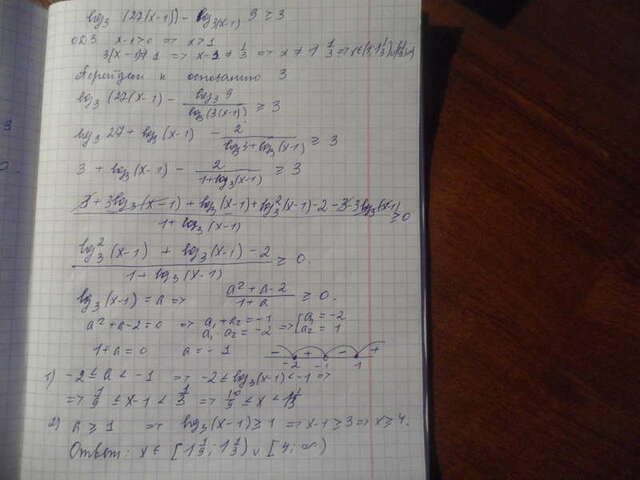 log₃ (27(x-1)) - log₃₍ₓ₋₁₎ 9 ≥ 3
ОДЗ x-1>0 => x>1
3(x-1)≠1 => x-1 ≠ 1/3 => x ≠ 1 1/3 =>
Перейдём к основанию 3
log₃ (27(x-1) - log₃ 9 / log₃(3(x-1)) ≥ 3
log₃ 27 + log₃ (x-1) - 2 / log₃3 + log₃(x-1) ≥ 3
3 + log₃ (x-1) - 2 / 1+log₃(x-1) ≥ 3
3 + 3log₃(x-1) + log₃(x-1) + log₃²(x-1) - 2 - 3 - 3log₃(x-1) / 1+log₃(x-1) ≥ 0
log₃²(x-1) + log₃(x-1) - 2 / 1+log₃(x-1) ≥ 0.
log₃(x-1) = a => a²+a-2 / 1+a ≥ 0.
a²+a-2=0 => a₁+a₂=-1 a₁ a₂=-2 => [a₁=-2 a₂=1
1+a=0 a=-1 - + - + -2 -1 1
1) -2 ≤ a < -1 => -2 ≤ log₃(x-1) < -1 =>
=> 1/9 ≤ x-1 < 1/3 => 10/9 ≤ x < 1 1/3
2) a ≥ 1 => log₃(x-1) ≥ 1 => x-1 ≥ 3 => x ≥ 4.
Ответ: x ∈ [1 1/9; 1 1/3) ∪ [4; ∞)